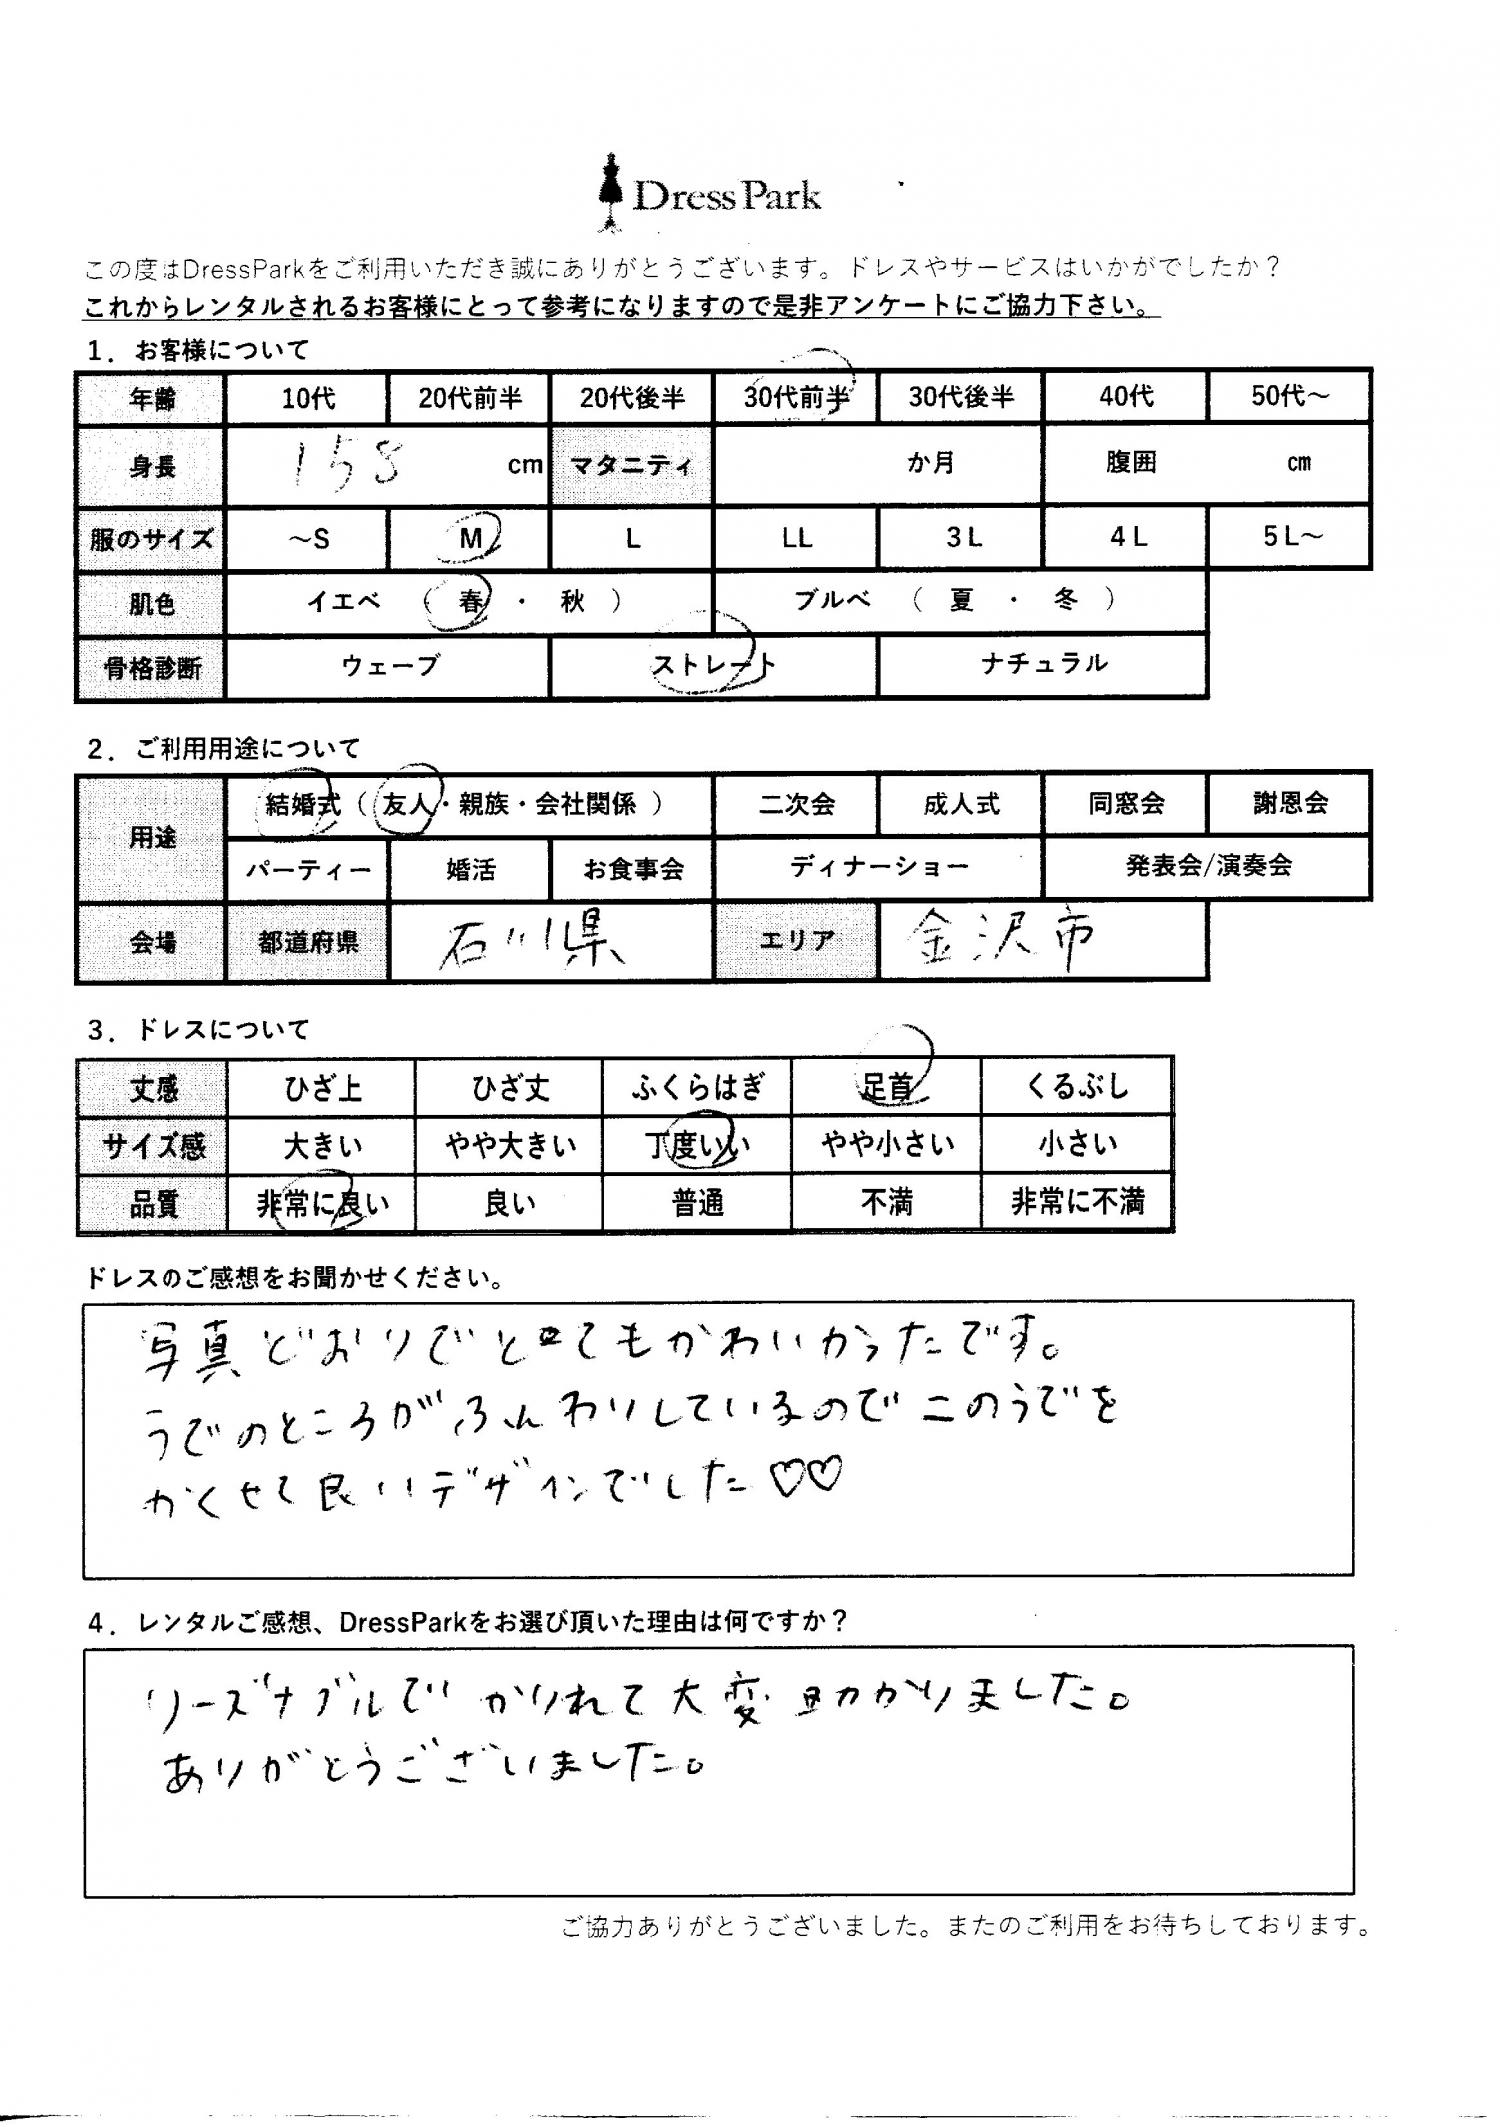 DressPark
この度はDressParkをご利用いただき誠にありがとうございます。ドレスやサービスはいかがでしたか？
これからレンタルされるお客様にとって参考になりますので是非アンケートにご協力下さい。
1．お客様について
年齢 10代 20代前半 20代後半 30代前半 30代後半 40代 50代～
身長 158 cm マタニティ か月 腹囲 cm
服のサイズ ～S M L LL 3L 4L 5L～
肌色 イエベ （ 春 ・ 秋 ） ブルベ （ 夏 ・ 冬 ）
骨格診断 ウェーブ ストレート ナチュラル
2．ご利用用途について
用途 結婚式（ 友人・親族・会社関係 ） 二次会 成人式 同窓会 謝恩会
パーティー 婚活 お食事会 ディナーショー 発表会/演奏会
会場 都道府県 石川県 エリア 金沢市
3．ドレスについて
丈感 ひざ上 ひざ丈 ふくらはぎ 足首 くるぶし
サイズ感 大きい やや大きい 丁度いい やや小さい 小さい
品質 非常に良い 良い 普通 不満 非常に不満
ドレスのご感想をお聞かせください。
写真どおりでとてもかわいかったです。
うでのところがふんわりしているのでニのうでを
かくせて良いデザインでした♡♡
4．レンタルご感想、DressParkをお選び頂いた理由は何ですか？
リーズナブルでかりれて大変助かりました。
ありがとうございました。
ご協力ありがとうございました。またのご利用をお待ちしております。